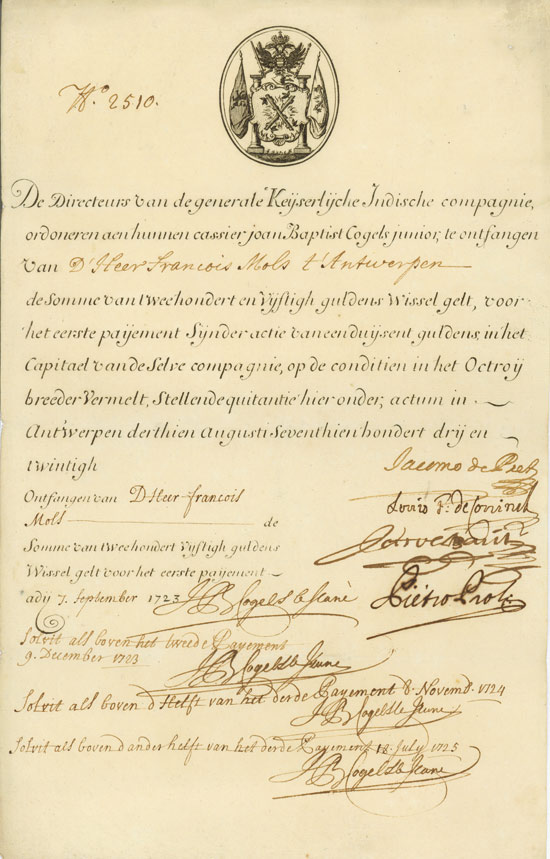 N.o 2510.
De Directeurs van de generale Keÿserlÿcke Indische compagnie,
ordoneren aen hunnen cassier joan Baptist Cogels junior, te ontfangen
van D'Heer Francois Mols t'Antwerpen
de Somme van twee hondert en Vÿftigh guldens Wissel gelt, voor
het eerste paÿement Sÿnder actie van een duÿsent guldens, in het
Capitael van de Selve compagnie, op de conditien in het Octroÿ
breeder Vermelt, Stellende quitantie hier onder, actum in
Antwerpen derthien Augusti Seventhien hondert drÿ en
twintigh
Jacomo de Pret
Ontfangen van D Heer francois
Louis F. de Coninck
Mols de
Somme van twee hondert Vÿftigh guldens
Wissel gelt voor het eerste paÿement
adij 7 September 1723 JB Cogels le Jeune
Pietro Proli
Solvit als boven het tweede Payement
9 December 1723
JB Cogels le Jeune
Solvit als boven d'Helft van het derde Payement 8 Novemb. 1724
JB Cogels le Jeune
Solvit als boven d'ander helft van het derde Payement 18 July 1725
JB Cogels le Jeune